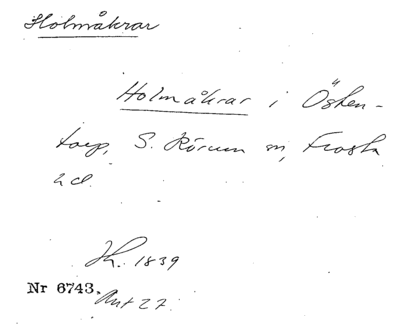 Holmåkrar
Holmåkrar i Östen-
torp, S. Rörum sn, Frosta
hd.
Jh. 1839
Nr 6743.
Akt 27.